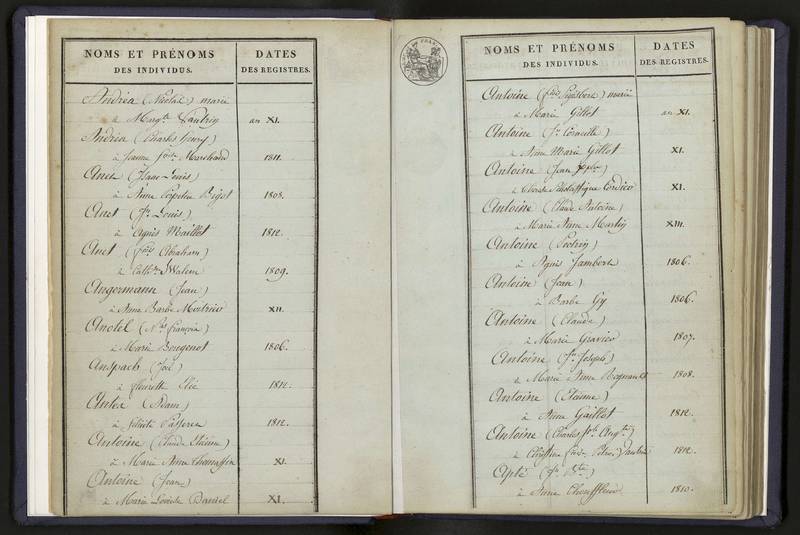 NOMS ET PRÉNOMS
DES INDIVIDUS.
DATES
DES REGISTRES.
Andréa (Nicolas) marié
à Margte. Vautrin an XI.
Andréa (Charles henry)
à Jeanne Marchand 1811.
Anet (Isaac Louis)
à Anne Bigot 1808.
Anet (fs. Louis)
à Agnès Maillot 1812.
Anet (Abraham)
à Cathne. Walem 1809.
Angermann (Jean)
à Anne Barbe XII.
Anotel (Nas. françois)
à Marie Bougenot 1806.
Anspach (Joël)
à fleurette Elie 1812.
Antea (Adam)
à félicité 1812.
Antoine (Claude Etienne)
à Marie Anne Thomassin XI.
Antoine (Jean)
à Marie Daniel XI.
NOMS ET PRÉNOMS
DES INDIVIDUS.
DATES
DES REGISTRES.
Antoine (fois. Sigisbert) marié
à Marie Gillot an XI.
Antoine (fs. Corneille)
à Anne Marie Gillot XI.
Antoine (Jean Jph.)
à Cordier XI.
Antoine (Claude Antoine)
à Marie Anne Martin XIII.
Antoine
à Agnès Jambert 1806.
Antoine (Jean)
à Barbe Gy 1806.
Antoine (Claude)
à Marie Gravier 1807.
Antoine (fs. Joseph)
à Marie Anne Regnault 1808.
Antoine (Etienne)
à Anne Gaillot 1812.
Antoine (Charles Jph. Augte.)
à Vautrin 1812.
Apté (Jn. Bte.)
à Anne 1810.